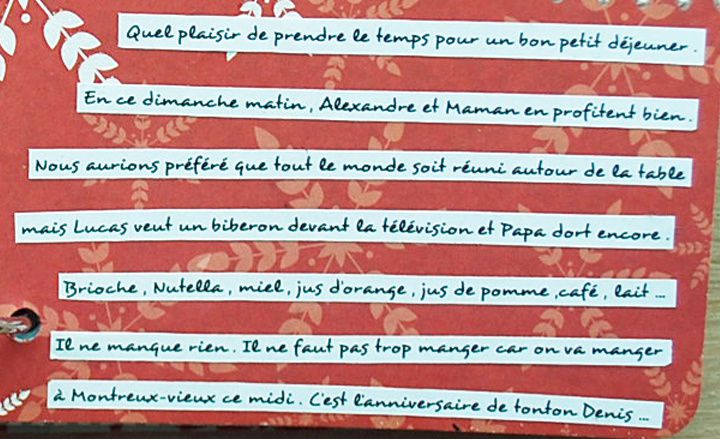 Quel plaisir de prendre le temps pour un bon petit déjeuner.
En ce dimanche matin, Alexandre et Maman en profitent bien.
Nous aurions préféré que tout le monde soit réuni autour de la table
mais Lucas veut un biberon devant la télévision et Papa dort encore.
Brioche, Nutella, miel, jus d'orange, jus de pomme, café, lait ...
Il ne manque rien. Il ne faut pas trop manger car on va manger
à Montreux-vieux ce midi. C'est l'anniversaire de tonton Denis ...